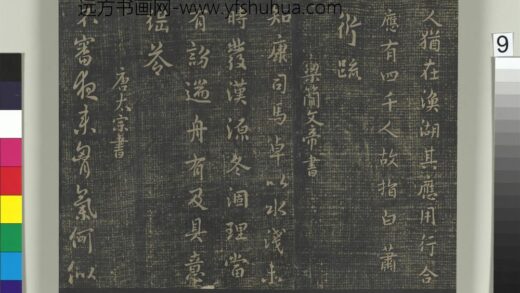 远方书画网-www.yfshuhua.com
9
人猶在渙湖其應用行合
應有四千人故指白 蕭
衍疏
梁簡文帝書
知康司馬卓以水淺未
時發漢源冬涸理當
有訪遄舟有及具臺
綱答
唐太宗書
不審夜來胃氣何似